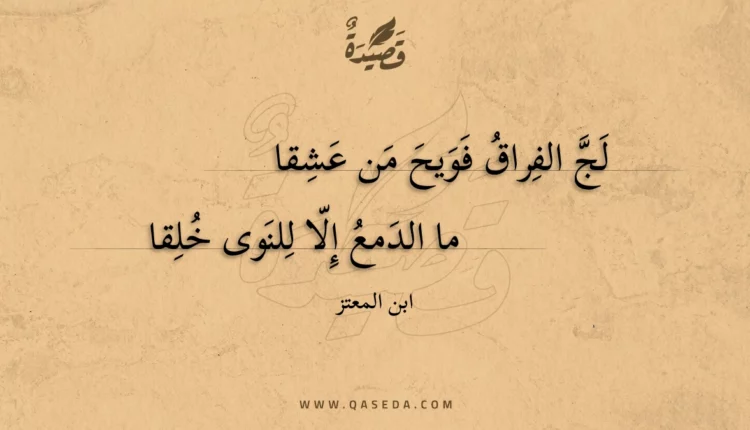 قَصِيدَةٌ
لَجَّ الفِراقُ فَوَيحَ مَن عَشِقا
ما الدَمعُ إِلّا لِلنَوى خُلِقا
ابن المعتز
WWW.QASEDA.COM